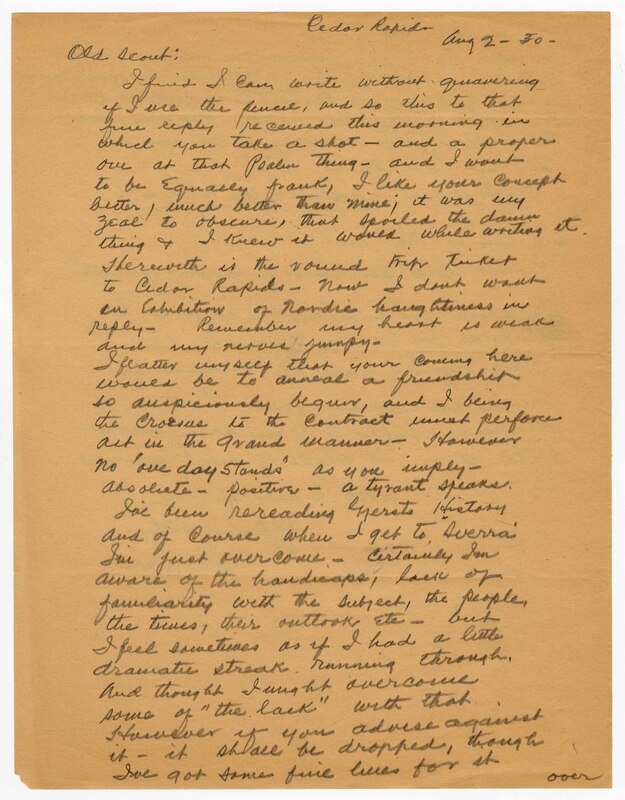 Cedar Rapids
Aug 2 - 30 -
Old Scout:
I find I can write without quavering
if I use the pencil, and so this to that
fine reply received this morning in
which you take a shot - and a proper
one at that Psalm thing - and I want
to be Equally frank, I like your concept
better, much better than mine; it was my
zeal to obscure, that spoiled the damn
thing & I knew it would while writing it.
Therewith is the round trip ticket
to Cedar Rapids - Now I dont want
an Exhibition of Nordic haughtiness in
reply - Remember my heart is weak
and my nerves jumpy -
I flatter myself that your coming here
would be to anneal a friendship
so auspiciously begun, and I being
the Croesus to the Contract must perforce
act in the grand manner - However
no "one day stands" as you imply -
absolute - positive - a tyrant speaks.
I've been rereading History
and of Course when I get to
I'm just overcome - Certainly I'm
aware of the handicaps, lack of
familiarity with the subject, the people,
the times, their outlook Etc - but
I feel sometimes as if I had a little
dramatic streak running through.
And thought I might overcome
some of "the lack" with that
However if you advise against
it - it shall be dropped, though
I've got some fine lines for it
over